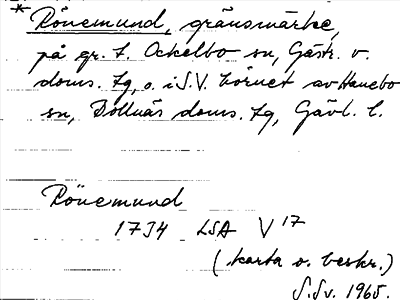 * Rönemund, gränsmärke,
på gr. t. Ockelbo sn, Gästr. v.
doms. tg, o. i S.V. hörnet av Hanebo
sn, Bollnäs doms. tg, Gävl. l.
Rönemund
1734 LSA V 17
(karta o. beskr.)
S. Sv. 1965.